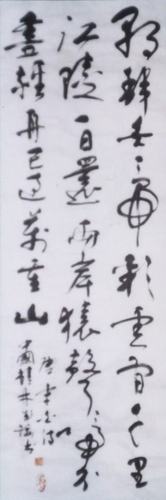 朝辞白帝彩雲間千里
江陵一日還兩岸猿聲啼不
盡輕舟已過萬重山
唐李白诗